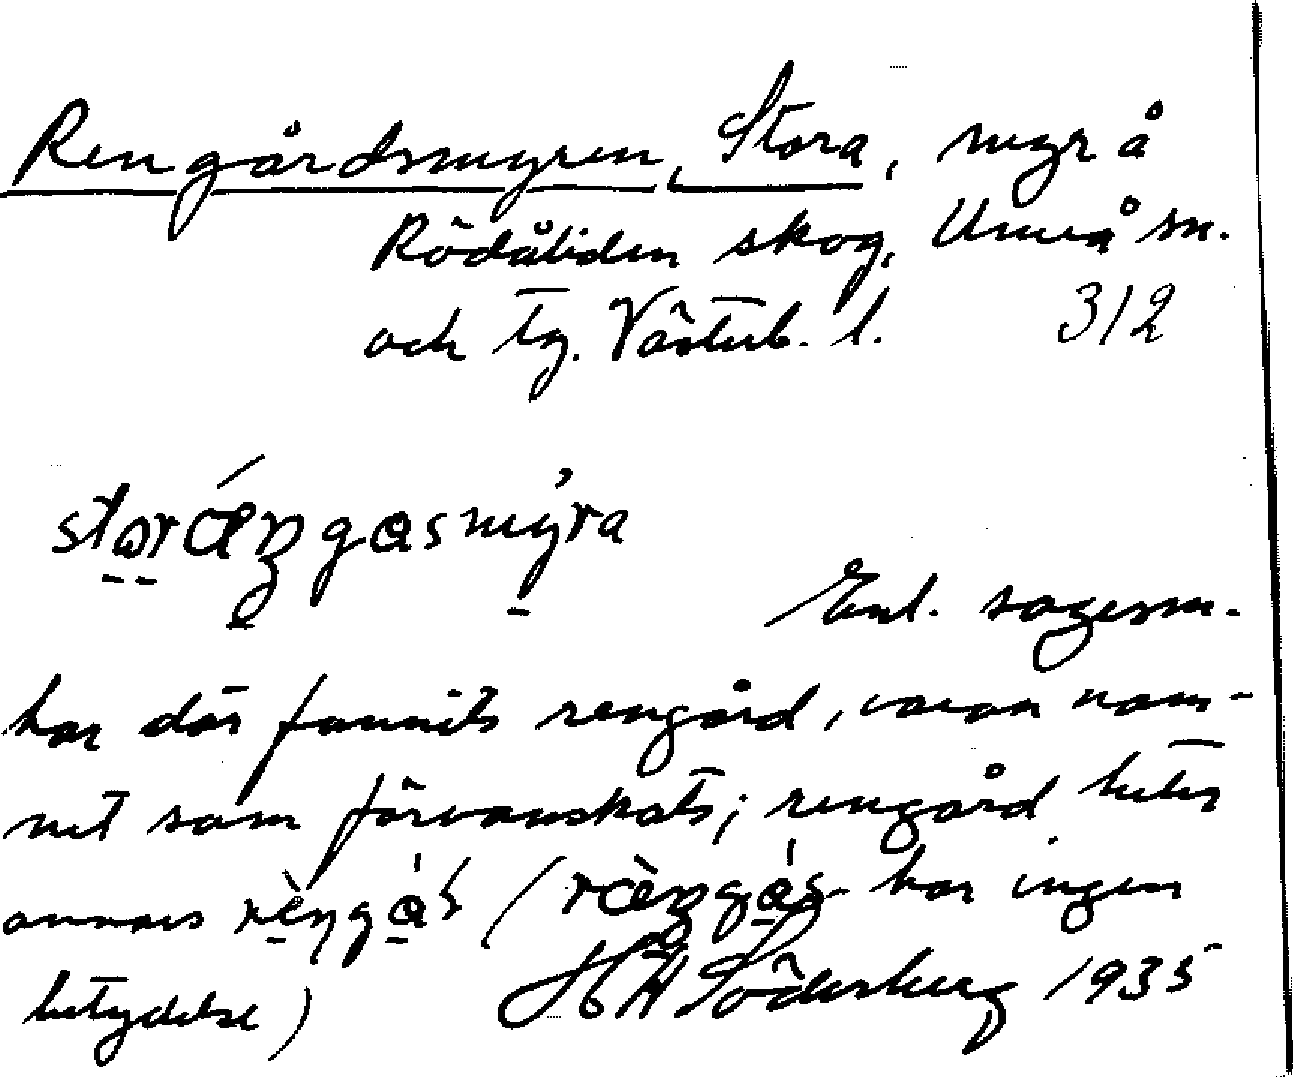 Rengårdsmyren, Stora, myr å
Rödåliden skog, Umeå sn.
och tg. Västerb. l. 312
storǽŋgasmýra
Enl. sagesm.
har där funnits rengård, varav nam-
net som förvanskats; rengård heter
annars (ræ̀ŋgás har ingen
betydelse) H Söderberg 1935